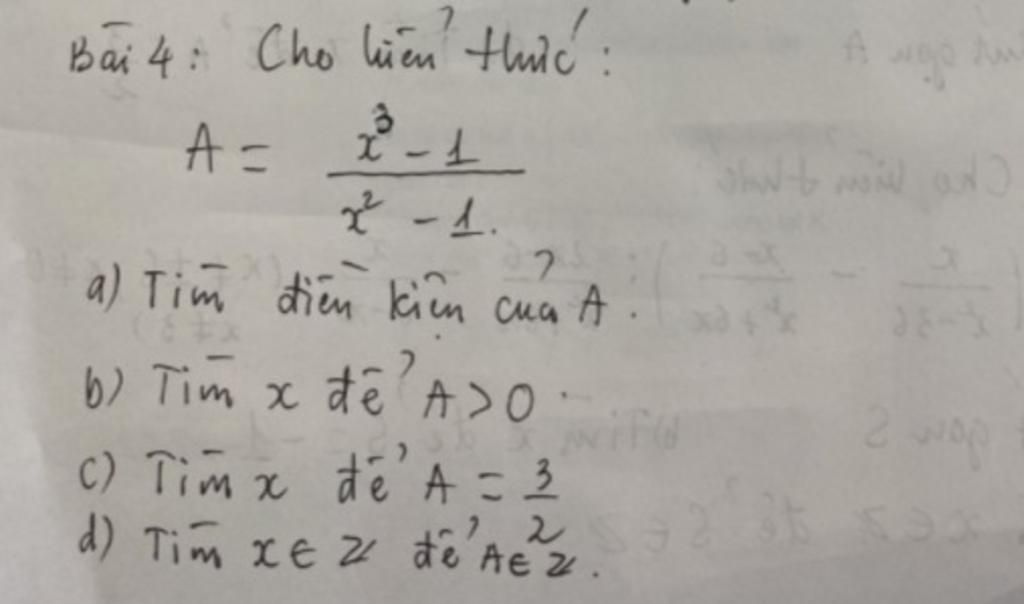 Bài 4: Cho biểu thức:
A = \frac{x^3 - 1}{x^2 - 1}.
a) Tìm điều kiện của A.
b) Tìm x để A > 0.
c) Tìm x để A = \frac{3}{2}
d) Tìm x ∈ Z để A ∈ Z.